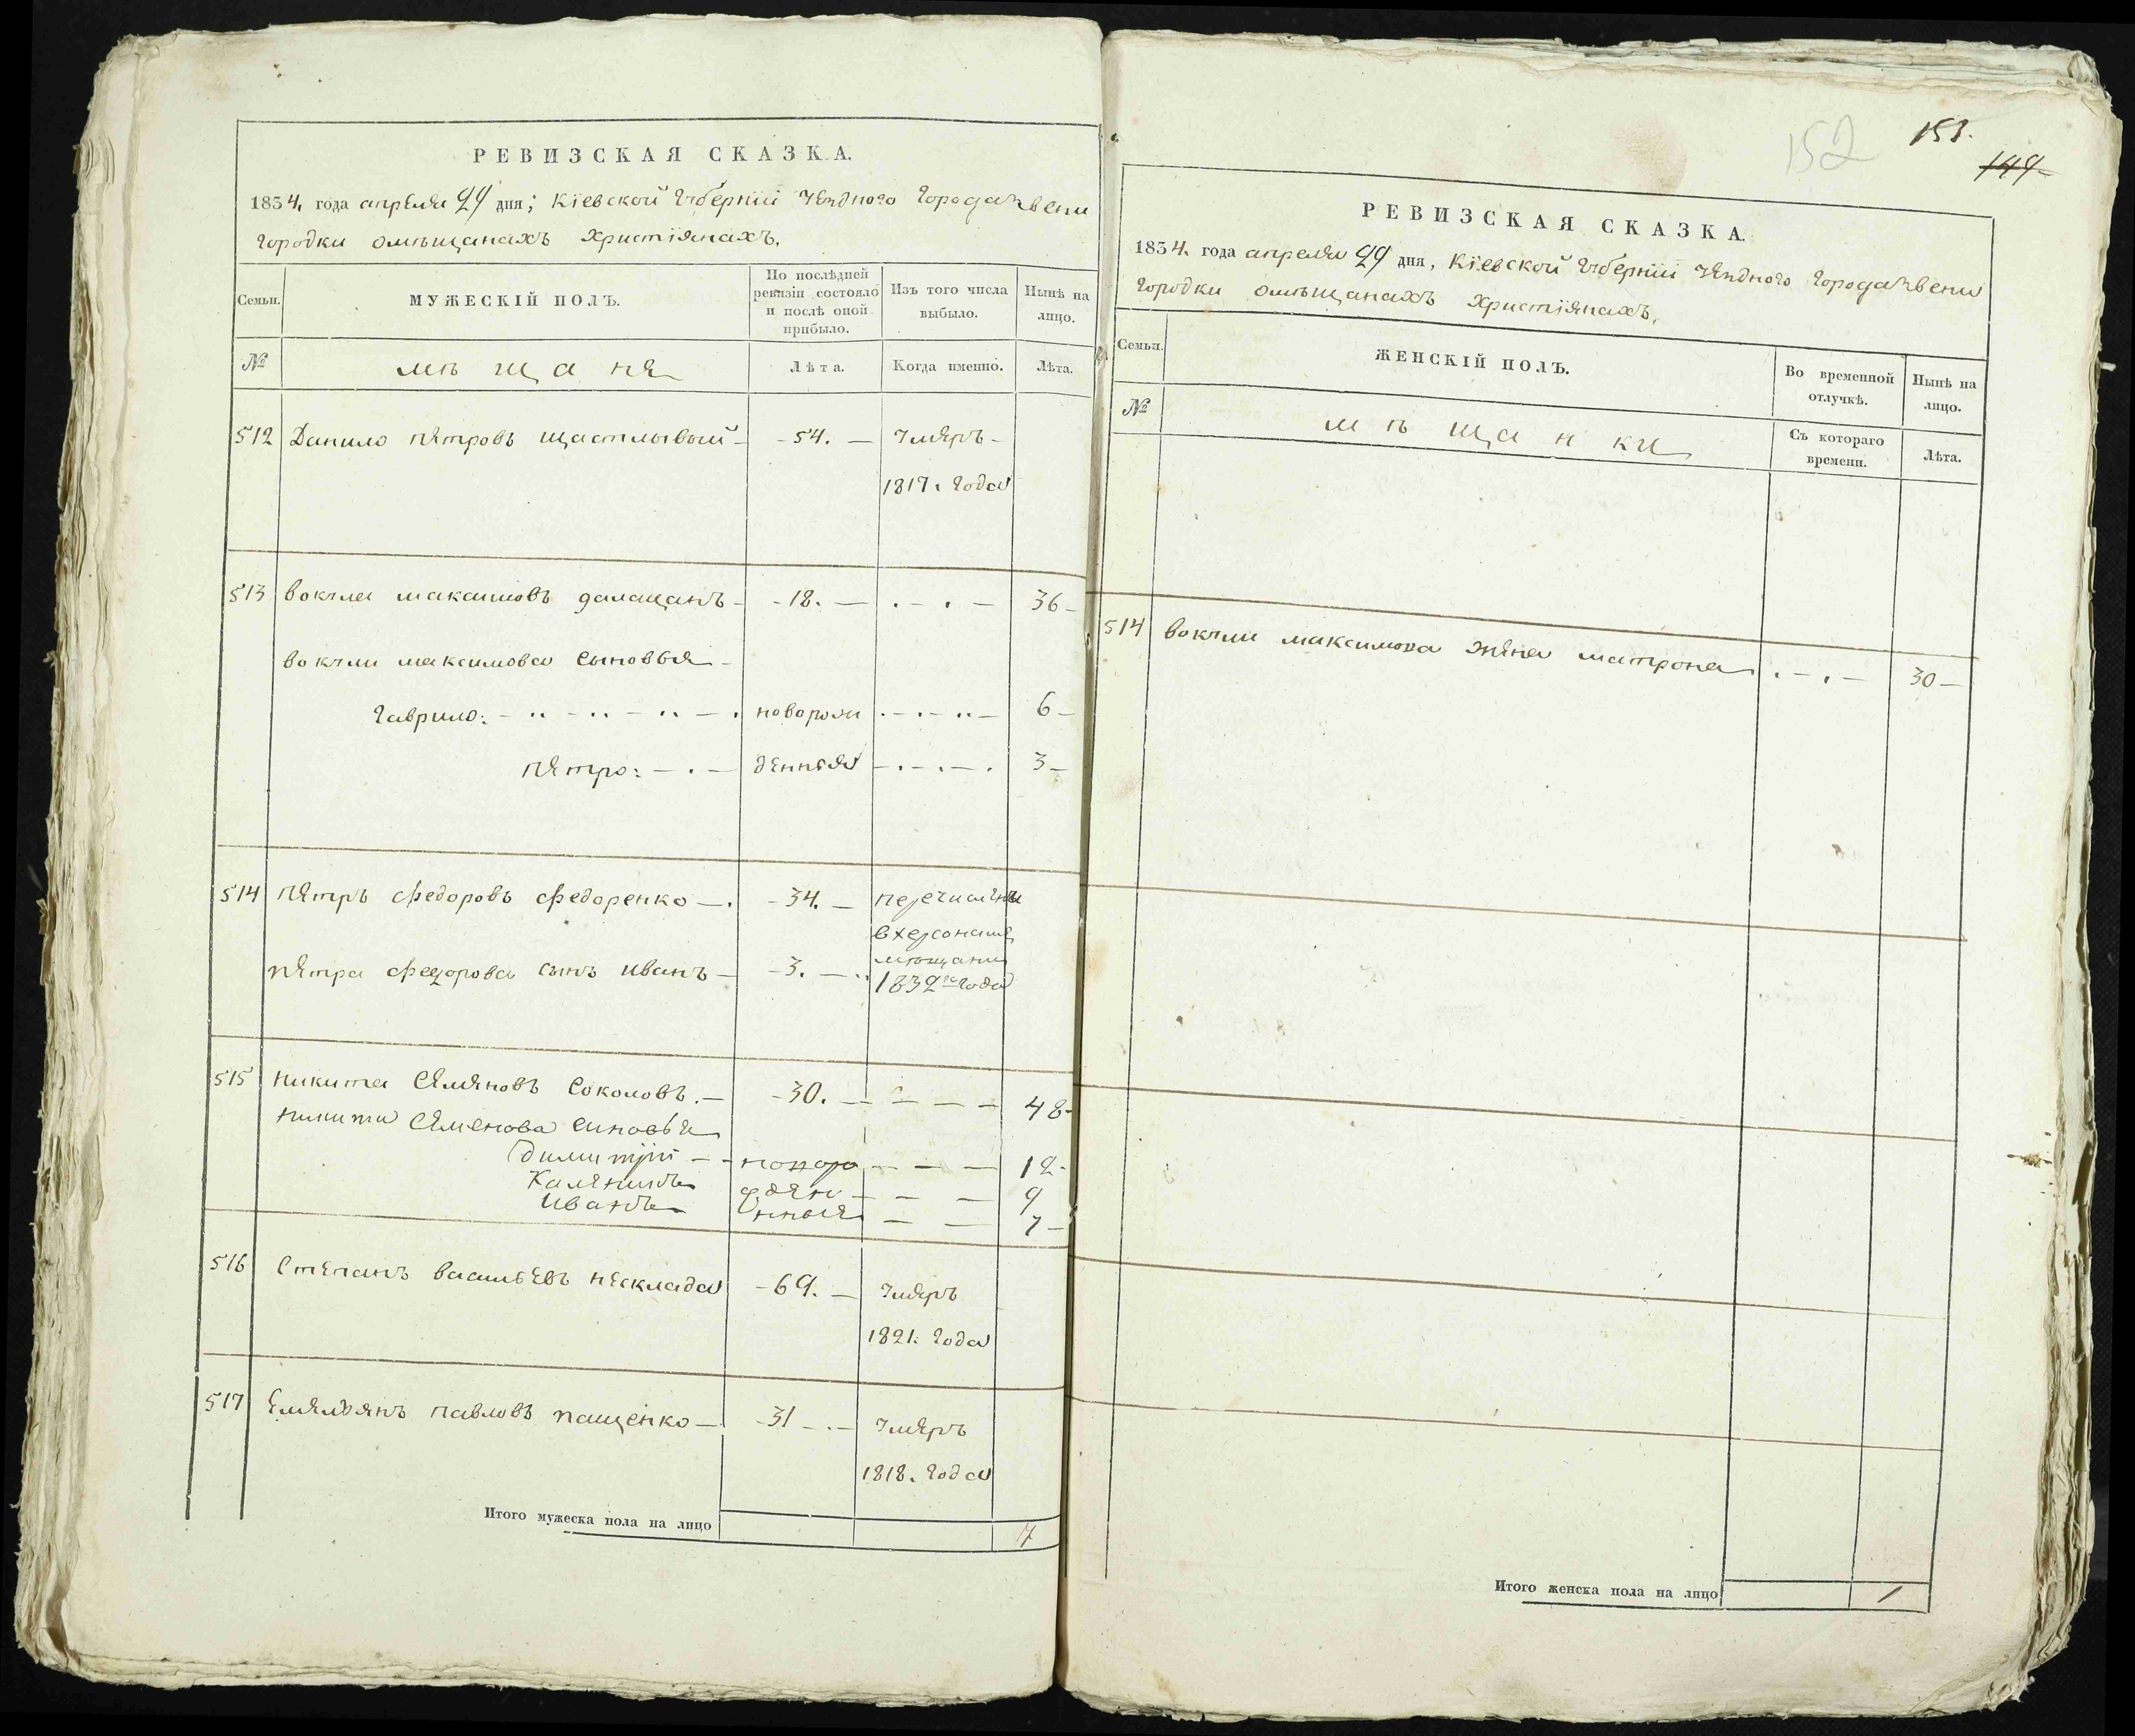 РЕВИЗСКАЯ СКАЗКА.
1834. года апреля 29 дня; Кіевской Губерніи Уезднаго Города Звени
городки омѣщанахъ христіянахъ.
Семьи.
МУЖЕСКІЙ ПОЛЪ.
По послѣдней ревизіи состояло и послѣ оной прибыло.
Изъ того числа выбыло.
Нынѣ на лицо.
№
мѣщане
Лѣта.
Когда именно.
Лѣта.
512 Данило петровъ щастливый - 54. — Умеръ -
1817. года
513 вокула максимовъ - 18. — 36 -
вокулы максимова сыновья -
гаврило: новорож 6 -
петро: денныя 3 -
514 петръ федоровъ федоренко - 34. — перечислены
вхерсонские
петра федорова сынъ иванъ - 3. — мещане
1832го года
515 никита Семеновъ Соколовъ. - 30. — 48 -
никиты Семенова синовья
Димитрій - новоро 12 -
Каленикъ жден 9
Иванъ нныя 7 -
516 Степанъ васильевъ нескладa - 69. — Умеръ
1821. года
517 Емельянъ павловъ пащенко - 31 - Умеръ
1818. года
Итого мужеска пола на лицо 7
152
153.
149
РЕВИЗСКАЯ СКАЗКА.
1834. года апреля 29 дня, Кіевской Губерніи Уезднаго Города Звени
городки омѣщанахъ христіянахъ.
Семьи.
ЖЕНСКІЙ ПОЛЪ.
Во временной отлучкѣ.
Нынѣ на лицо.
№
мѣщанки
Съ котораго времени.
Лѣта.
514 вокулы максимова жена матрона 30 -
Итого женска пола на лицо 1